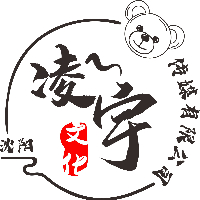 沈阳
凌宇
文化
传媒有限公司